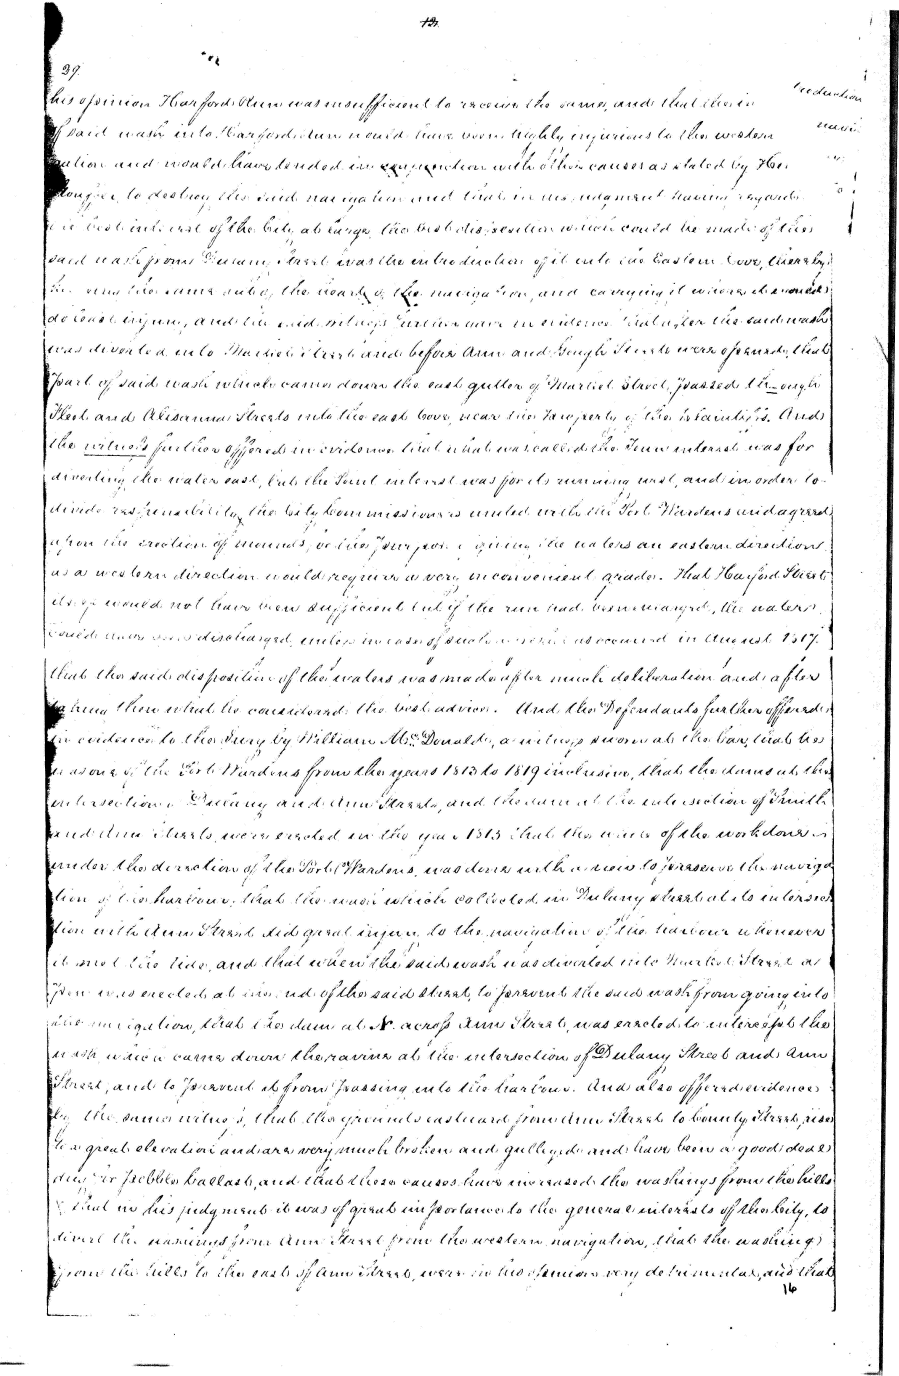 13.
39.
his opinion Harford Run was insufficient to receive the same, and that the introduction
of said wash into Harford Run would have been highly injurious to the western navi-
gation and would have tended in conjunction with other causes as stated by
to destroy the said navigation and that in his judgment having regard
best interest of the City at large, the best disposition which could be made of the
said wash from Dulany Street was the introduction of it into the Eastern Cove, thereby
the same into the heart of the navigation, and carrying it where it would
do least injury, and the said witness further gave in evidence that after the said wash
was diverted into Market Street and before Ann and Gough Streets were opened, that
part of said wash which came down the east gutter of Market Street, passed through
Fleet and Alisanna Streets into the east Cove, near the property of the plaintiffs. And
the witness further offered in evidence that what was called the Town interest was for
diverting the water east, but the Point interest was for its running west, and in order to
divide responsibility, the City Commissioners united with the Port Wardens and agreed
upon the erection of mounds, for the purpose of giving the waters an eastern direction,
as a western direction would require a very inconvenient grade. That Harford Street
itself would not have been sufficient but if the run had been enlarged, the waters
could have been discharged, unless in case of such as occurred in August 1817.
that the said disposition of the waters was made after much deliberation and after
taking then what he considered the best advice. And the Defendants further offered
in evidence to the Jury by William McDonald, a witness sworn at the bar, that he
was one of the Port Wardens from the years 1813 to 1819 inclusive, that the dams at the
intersection of Dulany and Ann Streets, and the dam at the intersection of Smith
and Ann Streets, were erected in the year 1815 that the whole of the work done
under the direction of the Port Wardens, was done with a view to preserve the naviga
tion of the harbour, that the wash which collected in Dulany street at its intersec
tion with Ann Street did great injury to the navigation of the harbour whenever
it met the tide, and that when the said wash was diverted into Market Street a
pen was erected at the end of the said street, to prevent the said wash from going into
the navigation, that the dam at N. across Ann Street, was erected to intercept the
wash which came down the ravine at the intersection of Dulany Street and Ann
Street, and to prevent it from passing into the harbour. And also offered evidence
by the same witness, that the grounds eastward from Ann Street to County Street, rise
to a great elevation and are very much broken and gullied and have been a good deal
dug for pebble ballast, and that these causes have increased the washings from the hills
that in his judgment it was of great importance to the general interests of the City, to
divert the washings from Ann Street from the western navigation, that the washing
from the hills to the east of Ann Street, were in his opinion very detrimental, and that
16